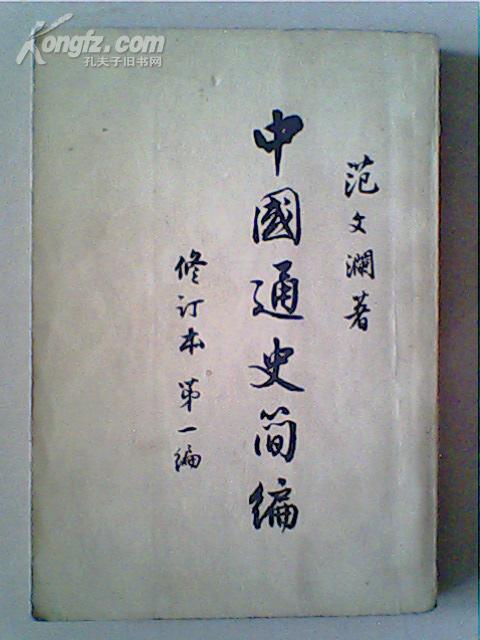 Kongfz.com
孔夫子旧书网
范文瀾著
中國通史简编
修订本 第一编